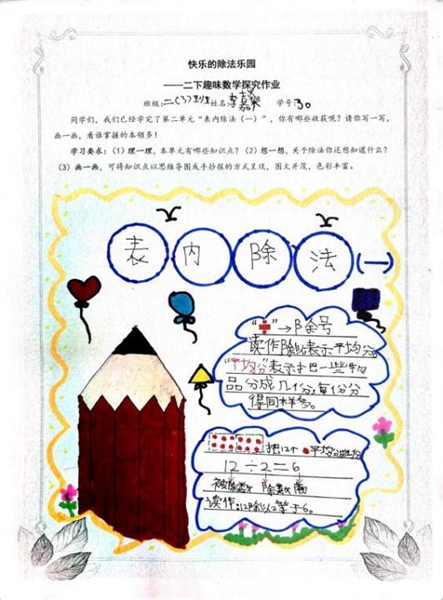 快乐的除法乐园
——二下趣味数学探究作业
班级:二(3)班 姓名: 学号:30
同学们,我们已经学完了第二单元“表内除法(一)”,你有哪些收获呢?请你写一写,
画一画,看谁掌握的本领多!
学习要求:(1)理一理,本单元有哪些知识点?(2)想一想,关于除法你还想知道什么?
(3)画一画,可将知识点以思维导图或手抄报的方式呈现,图文并茂,色彩丰富。
表内除法(一)
“÷”→除号
读作除以表示平均分
“平均分”表示把一些物
品分成几份,每份分
得同样多。
把12个平均分成
12÷2=6
被除数 除数 商
读作:12除以2等于6。